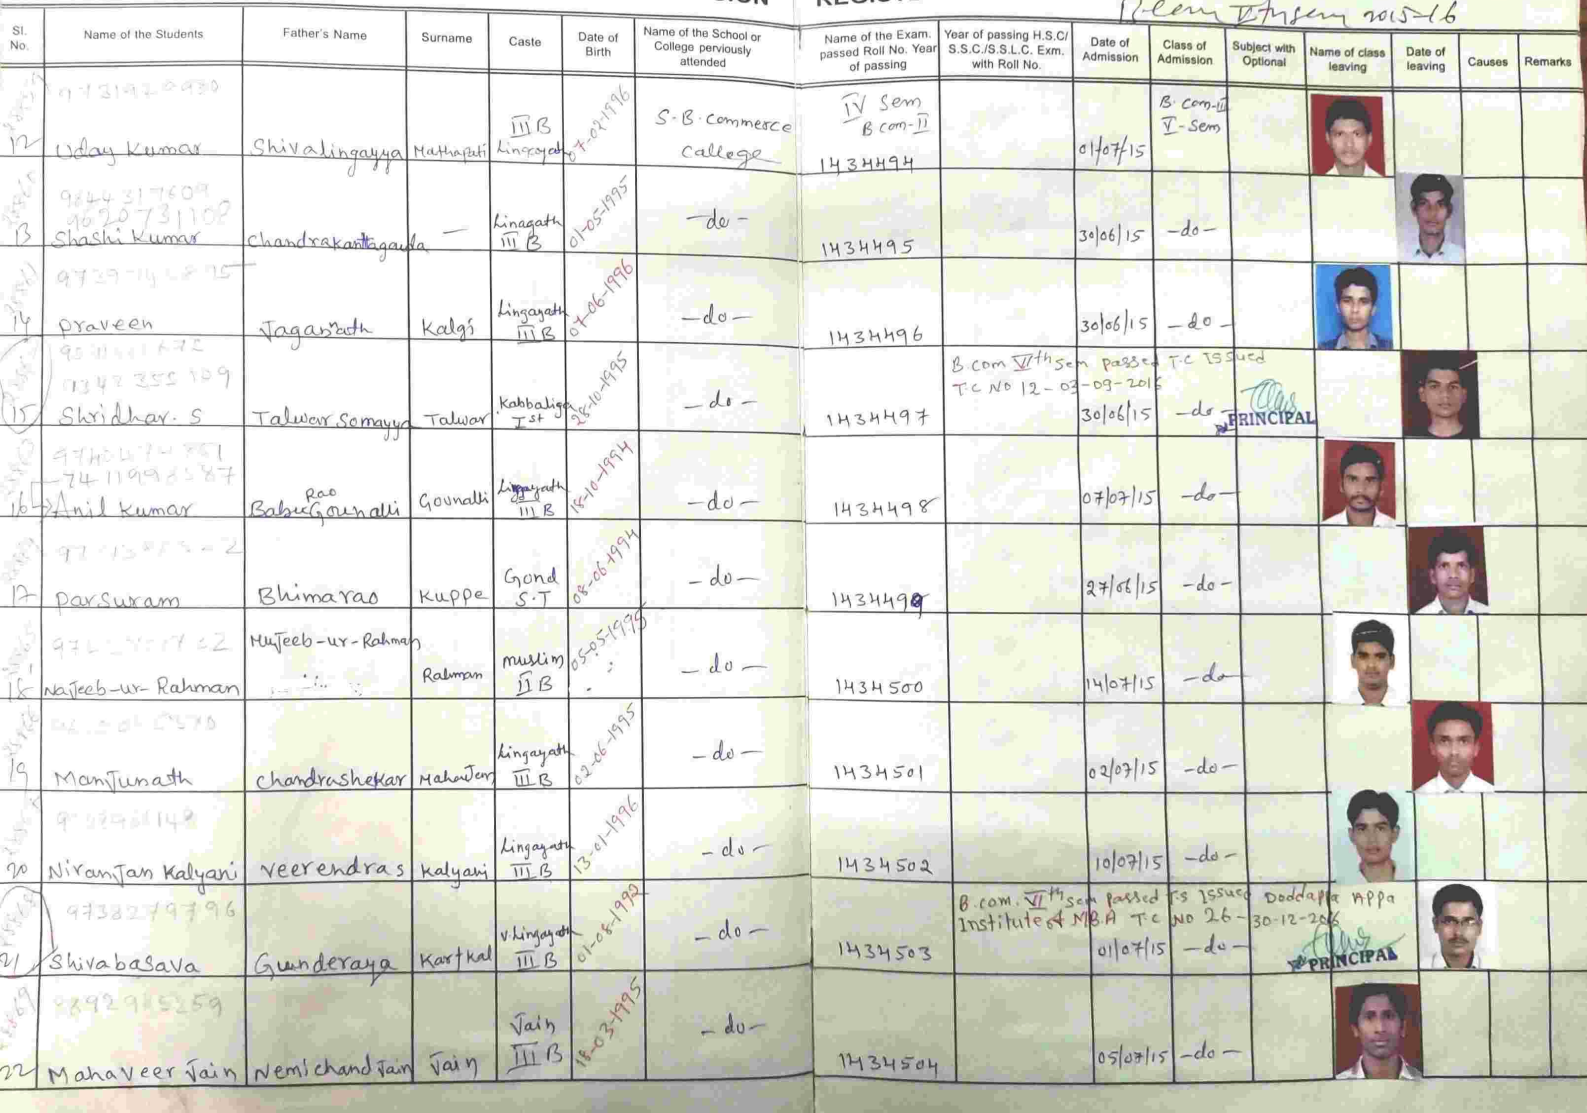 REGISTE
B.com V sem 2015-16
Sl. No. Name of the Students Father's Name Surname Caste Date of Birth Name of the School or College perviously attended Name of the Exam. passed Roll No. Year of passing Year of passing H.S.C/ S.S.C./S.S.L.C. Exm. with Roll No. Date of Admission Class of Admission Subject with Optional Name of class leaving Date of leaving Causes Remarks
9731920930
12 Uday Kumar Shivalingayya Mathapati III B Lingayath 07-02-1996 S.B.Commerce College IV Sem B com-II 1434494 01/07/15 B. com-III V-Sem
9644317609
9620731108
13 Shashi Kumar Chandrakanttagauda — Linagath III B 01-05-1995 -do- 1434495 30/06/15 -do-
14 Praveen Jaganath Kalgi Lingayath III B 07-06-1996 -do- 1434496 30/06/15 -do-
B.com VIth Sem passed T.C Issued
T.C NO 12-03-09-2016
15 Shridhar. S Talwar Somayya Talwar Kabbaliga Ist 28-10-1995 -do- 1434497 30/06/15 -do- PRINCIPAL
16 Anil Kumar Babu Rao Gounalli Gounalli Lingayath III B 18-10-1994 -do- 1434498 07/07/15 -do-
17 Parsuram Bhimarao Kuppe Gond S.T 08-06-1994 -do- 1434499 27/06/15 -do-
18 Najeeb-ur-Rahman Mujeeb-ur-Rahman Rahman muslim II B 05-05-1995 -do- 1434500 14/07/15 -do-
19 Manjunath Chandrashekar Mahajen Lingayath III B 02-06-1995 -do- 1434501 02/07/15 -do-
20 Niranjan Kalyani Veerendra s Kalyani Lingayath III B 13-01-1996 -do- 1434502 10/07/15 -do-
9738279796
B.com. VIth sem passed T.S Issued Doddappa Appa
Institute of M.B.A T.C NO 26-30-12-2016
21 Shivabasava Gunderaya Kartkal V.Lingayath III B 01-08-1992 -do- 1434503 01/07/15 -do- PRINCIPAL
22 Mahaveer Jain Nemichand Jain Jain Jain III B 18-03-1995 -do- 1434504 05/07/15 -do-